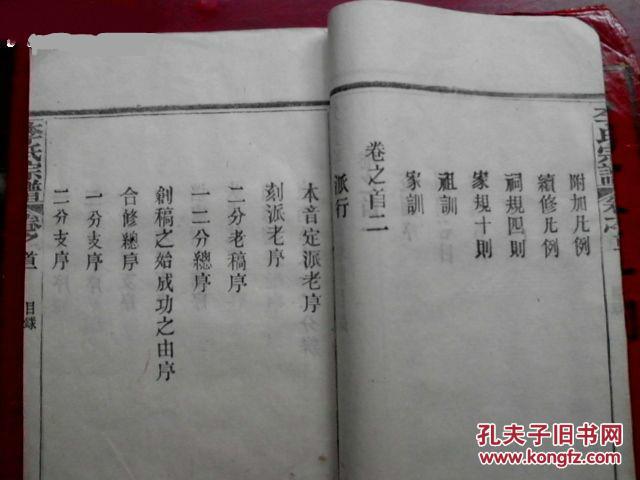 李氏宗譜
卷之首
附加凡例
續修凡例
祠規四則
家規十則
祖訓
家訓
卷之首二
派行
木音定派老序
刻派老序
二分老稿序
一二分總序
創稿之始成功之由序
合修總序
一分支序
二分支序
李氏宗譜
卷之首
目錄
孔夫子旧书网
www.kongfz.com